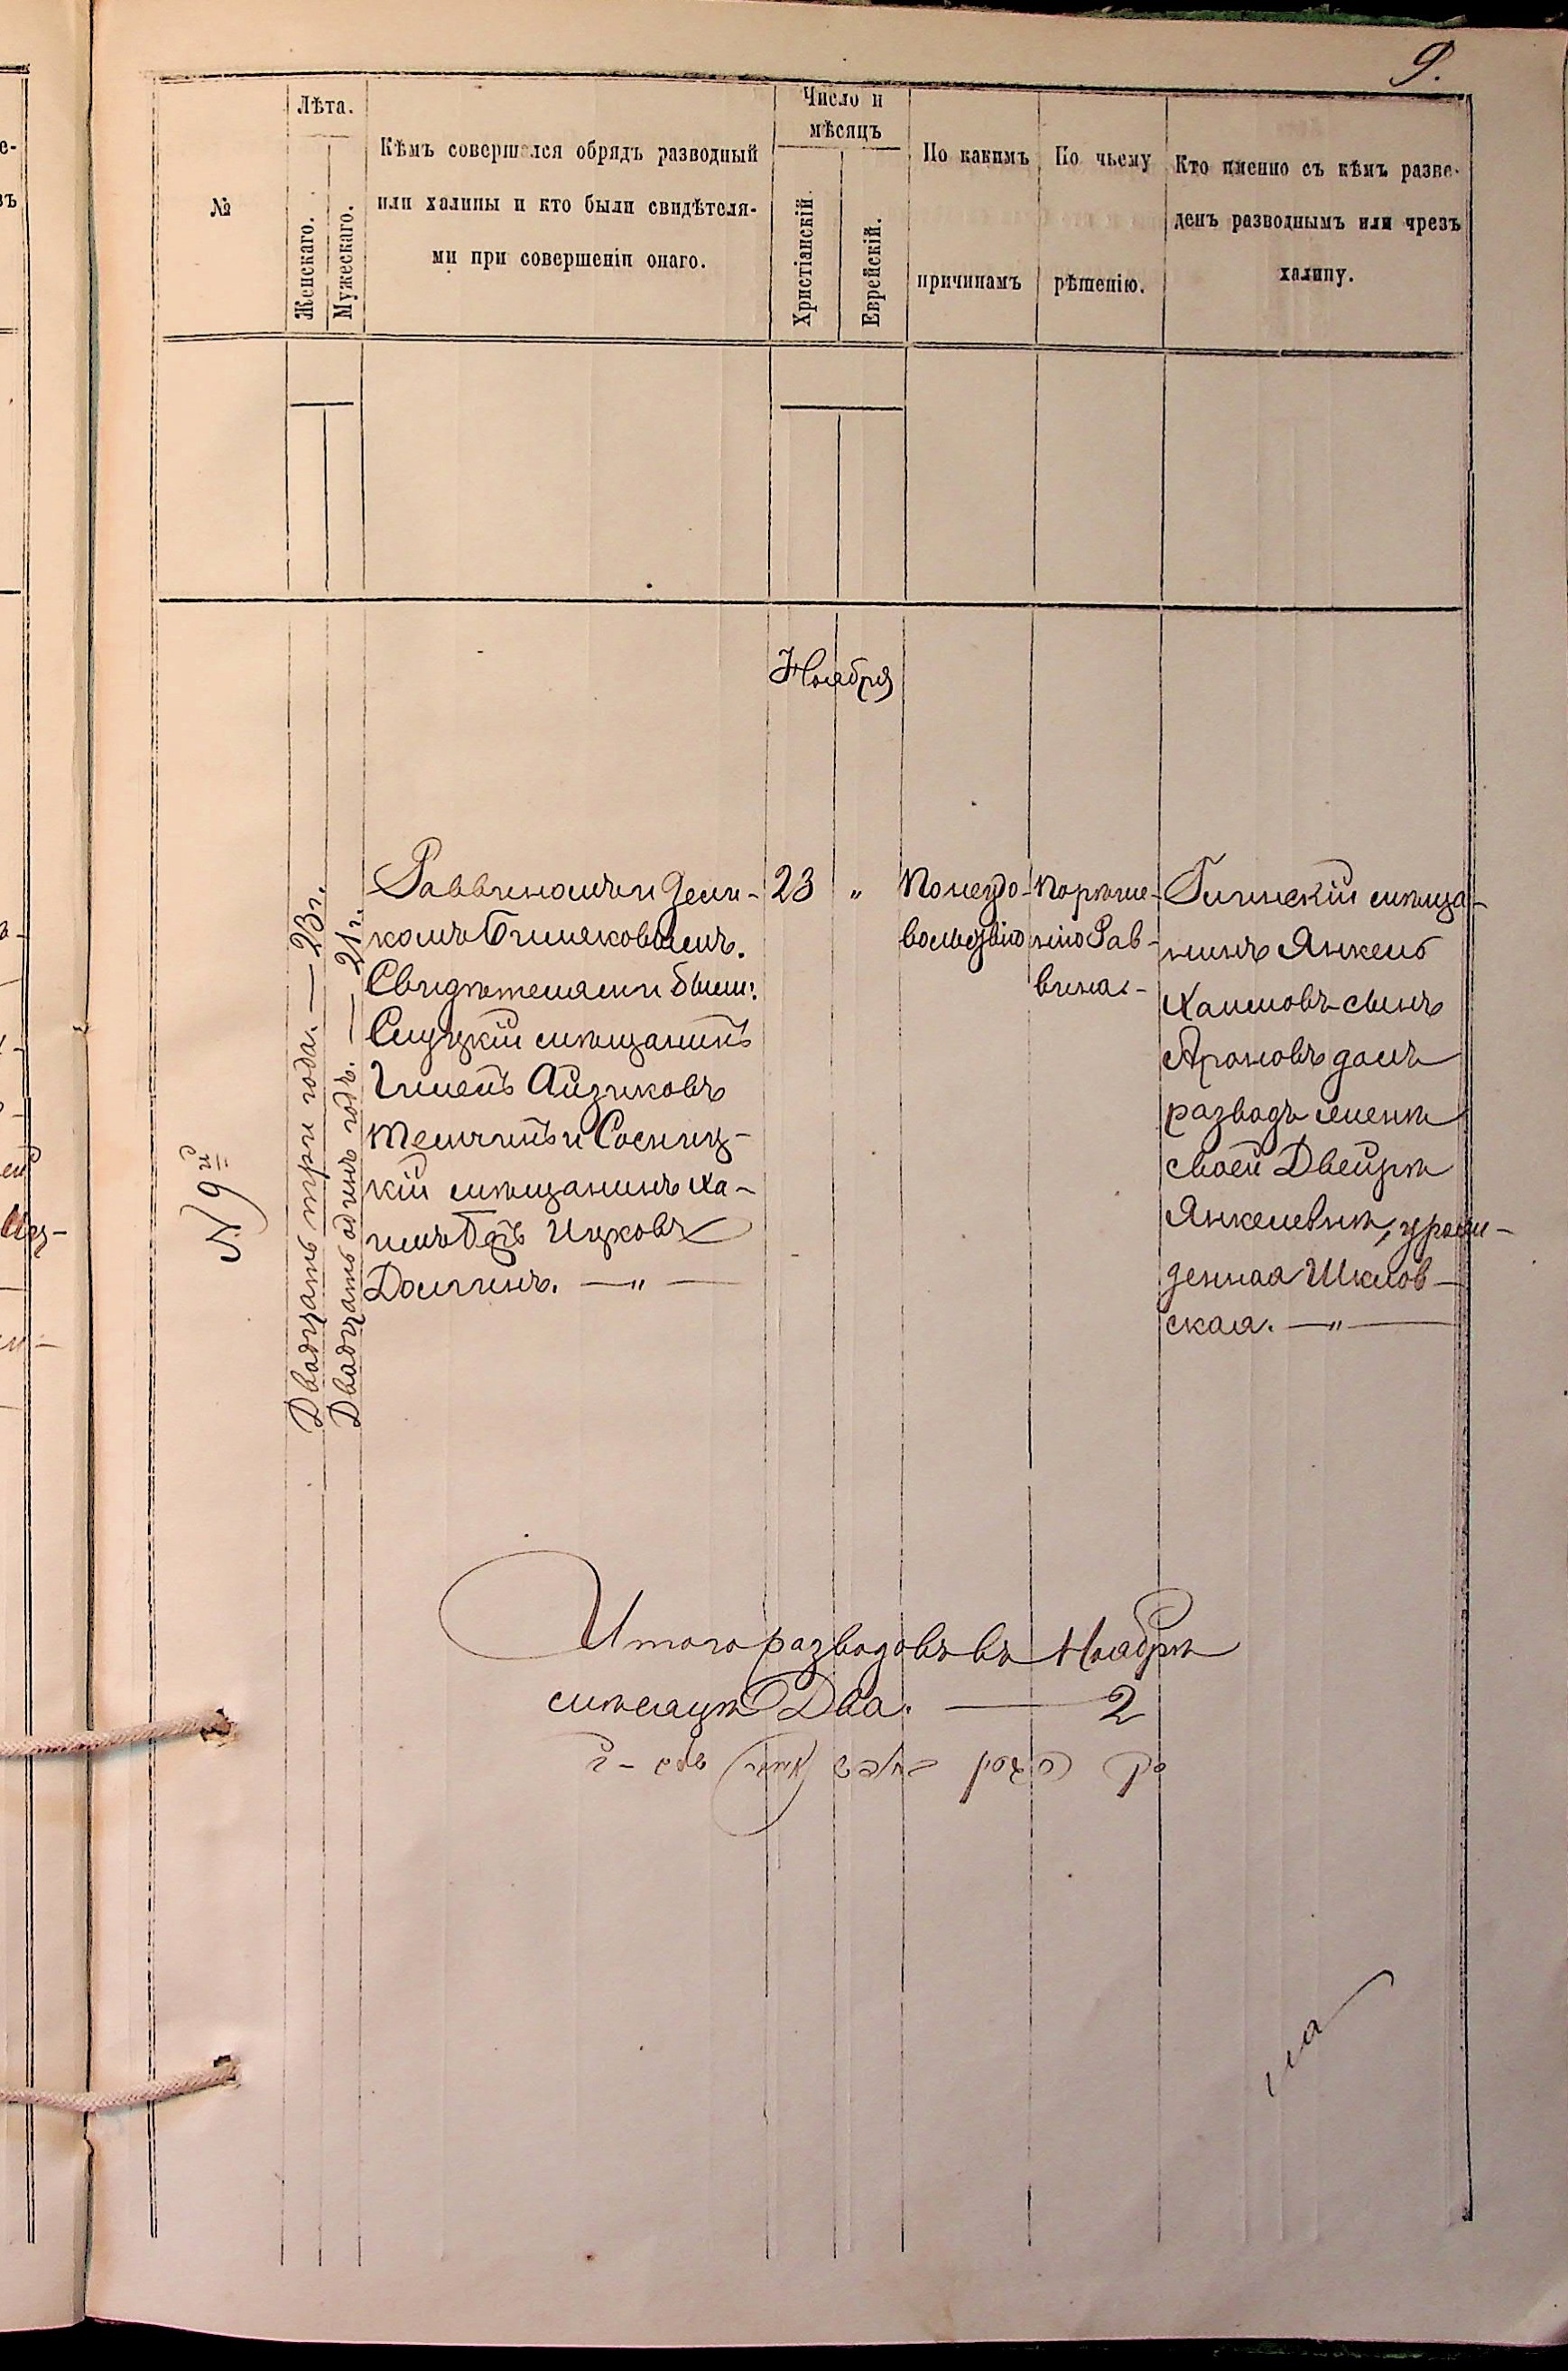 9.
№
Лѣта.
Женскаго.
Мужескаго.
Кѣмъ совершался обрядъ разводный
или халицы и кто были свидѣтеля-
ми при совершеніи онаго.
Число и
мѣсяцъ
Христіанскій.
Еврейскій.
По какимъ
причинамъ
По чьему
рѣшенію.
Кто именно съ кѣмъ разве-
денъ разводнымъ или чрезъ
халицу.
Ноября
№ 9й
Двадцать три года. — 23 г.
Двадцать одинъ годъ. — 21 г.
Раввиномъ
Свидѣтелями были:
Слуцкій мѣщанинъ
Айзиковъ
и Сосниц-
кій мѣщанинъ Ха-
имъ Ицковъ
23 "
По неудо-
вольствію
По рѣше-
нію Рав-
вина. -
мѣща-
нинъ Янкель
Хаимовъ сынъ
Ароновъ далъ
разводъ женѣ
своей Двейрѣ
Янкелевнѣ, урож-
денная Шклов-
ская. — " —
Итого разводовъ въ Ноябрѣ
мѣсяцѣ Два. — 2